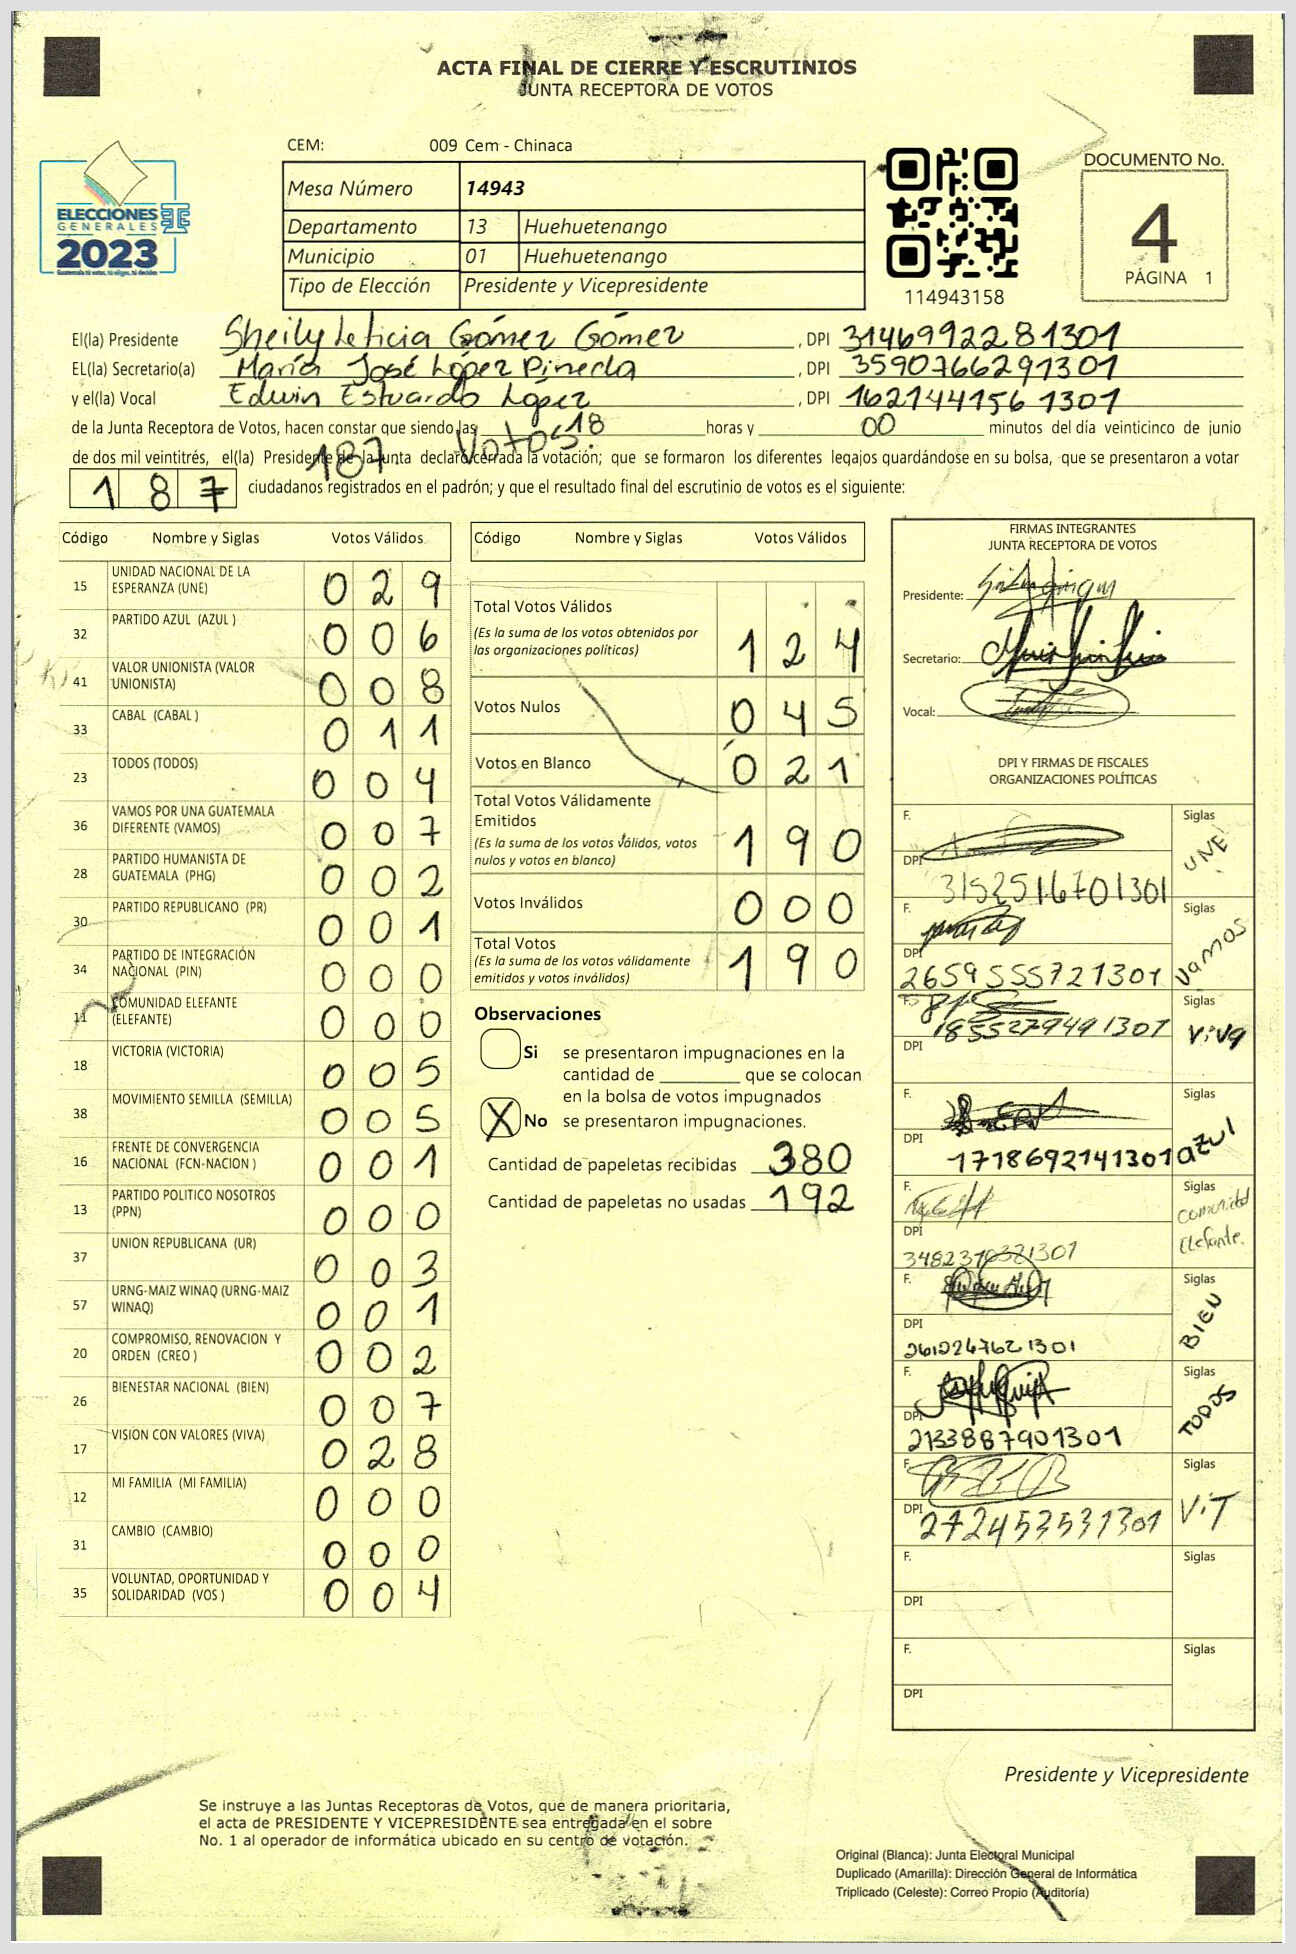 ACTA FINAL DE CIERRE Y ESCRUTINIOS
JUNTA RECEPTORA DE VOTOS
CEM: 009 Cem - Chinaca
ELECCIONES
GENERALES
2023
Guatemala tú votas, tú eliges, tú decides
Mesa Número 14943
Departamento 13 Huehuetenango
Municipio 01 Huehuetenango
Tipo de Elección Presidente y Vicepresidente
114943158
DOCUMENTO No.
4
PÁGINA 1
El(la) Presidente Sheily Leticia Gómez Gómez, DPI 3146992281301
EL(la) Secretario(a) María José López Pineda, DPI 3590766291301
y el(la) Vocal Edwin Estuardo López, DPI 1621441561301
de la Junta Receptora de Votos, hacen constar que siendo las 18 horas y 00 minutos del día veinticinco de junio
187 Votos.
de dos mil veintitrés, el(la) Presidente de la Junta declaró cerrada la votación; que se formaron los diferentes legajos guardándose en su bolsa, que se presentaron a votar
187 ciudadanos registrados en el padrón; y que el resultado final del escrutinio de votos es el siguiente:
Código Nombre y Siglas Votos Válidos
15 UNIDAD NACIONAL DE LA ESPERANZA (UNE) 029
32 PARTIDO AZUL (AZUL ) 006
41 VALOR UNIONISTA (VALOR UNIONISTA) 008
33 CABAL (CABAL ) 011
23 TODOS (TODOS) 004
36 VAMOS POR UNA GUATEMALA DIFERENTE (VAMOS) 007
28 PARTIDO HUMANISTA DE GUATEMALA (PHG) 002
30 PARTIDO REPUBLICANO (PR) 001
34 PARTIDO DE INTEGRACIÓN NACIONAL (PIN) 000
11 COMUNIDAD ELEFANTE (ELEFANTE) 000
18 VICTORIA (VICTORIA) 005
38 MOVIMIENTO SEMILLA (SEMILLA) 005
16 FRENTE DE CONVERGENCIA NACIONAL (FCN-NACION ) 001
13 PARTIDO POLITICO NOSOTROS (PPN) 000
37 UNION REPUBLICANA (UR) 003
57 URNG-MAIZ WINAQ (URNG-MAIZ WINAQ) 001
20 COMPROMISO, RENOVACION Y ORDEN (CREO ) 002
26 BIENESTAR NACIONAL (BIEN) 007
17 VISION CON VALORES (VIVA) 028
12 MI FAMILIA (MI FAMILIA) 000
31 CAMBIO (CAMBIO) 000
35 VOLUNTAD, OPORTUNIDAD Y SOLIDARIDAD (VOS ) 004
Código Nombre y Siglas Votos Válidos
Total Votos Válidos
(Es la suma de los votos obtenidos por las organizaciones políticas) 124
Votos Nulos 045
Votos en Blanco 021
Total Votos Válidamente Emitidos
(Es la suma de los votos válidos, votos nulos y votos en blanco) 190
Votos Inválidos 000
Total Votos
(Es la suma de los votos válidamente emitidos y votos inválidos) 190
Observaciones
Si se presentaron impugnaciones en la
cantidad de ________ que se colocan
en la bolsa de votos impugnados
X No se presentaron impugnaciones.
Cantidad de papeletas recibidas 380
Cantidad de papeletas no usadas 192
FIRMAS INTEGRANTES
JUNTA RECEPTORA DE VOTOS
Presidente:
Secretario:
Vocal:
DPI Y FIRMAS DE FISCALES
ORGANIZACIONES POLÍTICAS
F. Siglas UNE
DPI 3152516701301
F. Siglas Vamos
DPI 2659555721301
F. Siglas Viva
DPI 1855279491301
F. Siglas azul
DPI 1718692141301
F. Siglas Comunidad Elefante.
DPI 3482370321301
F. Siglas BIEN
DPI 2610247621301
F. Siglas TODOS
DPI 2133887901301
F. Siglas ViT
DPI 2724535311301
F. Siglas
DPI
F. Siglas
DPI
Presidente y Vicepresidente
Se instruye a las Juntas Receptoras de Votos, que de manera prioritaria,
el acta de PRESIDENTE Y VICEPRESIDENTE sea entregada en el sobre
No. 1 al operador de informática ubicado en su centro de votación.
Original (Blanca): Junta Electoral Municipal
Duplicado (Amarilla): Dirección General de Informática
Triplicado (Celeste): Correo Propio (Auditoría)